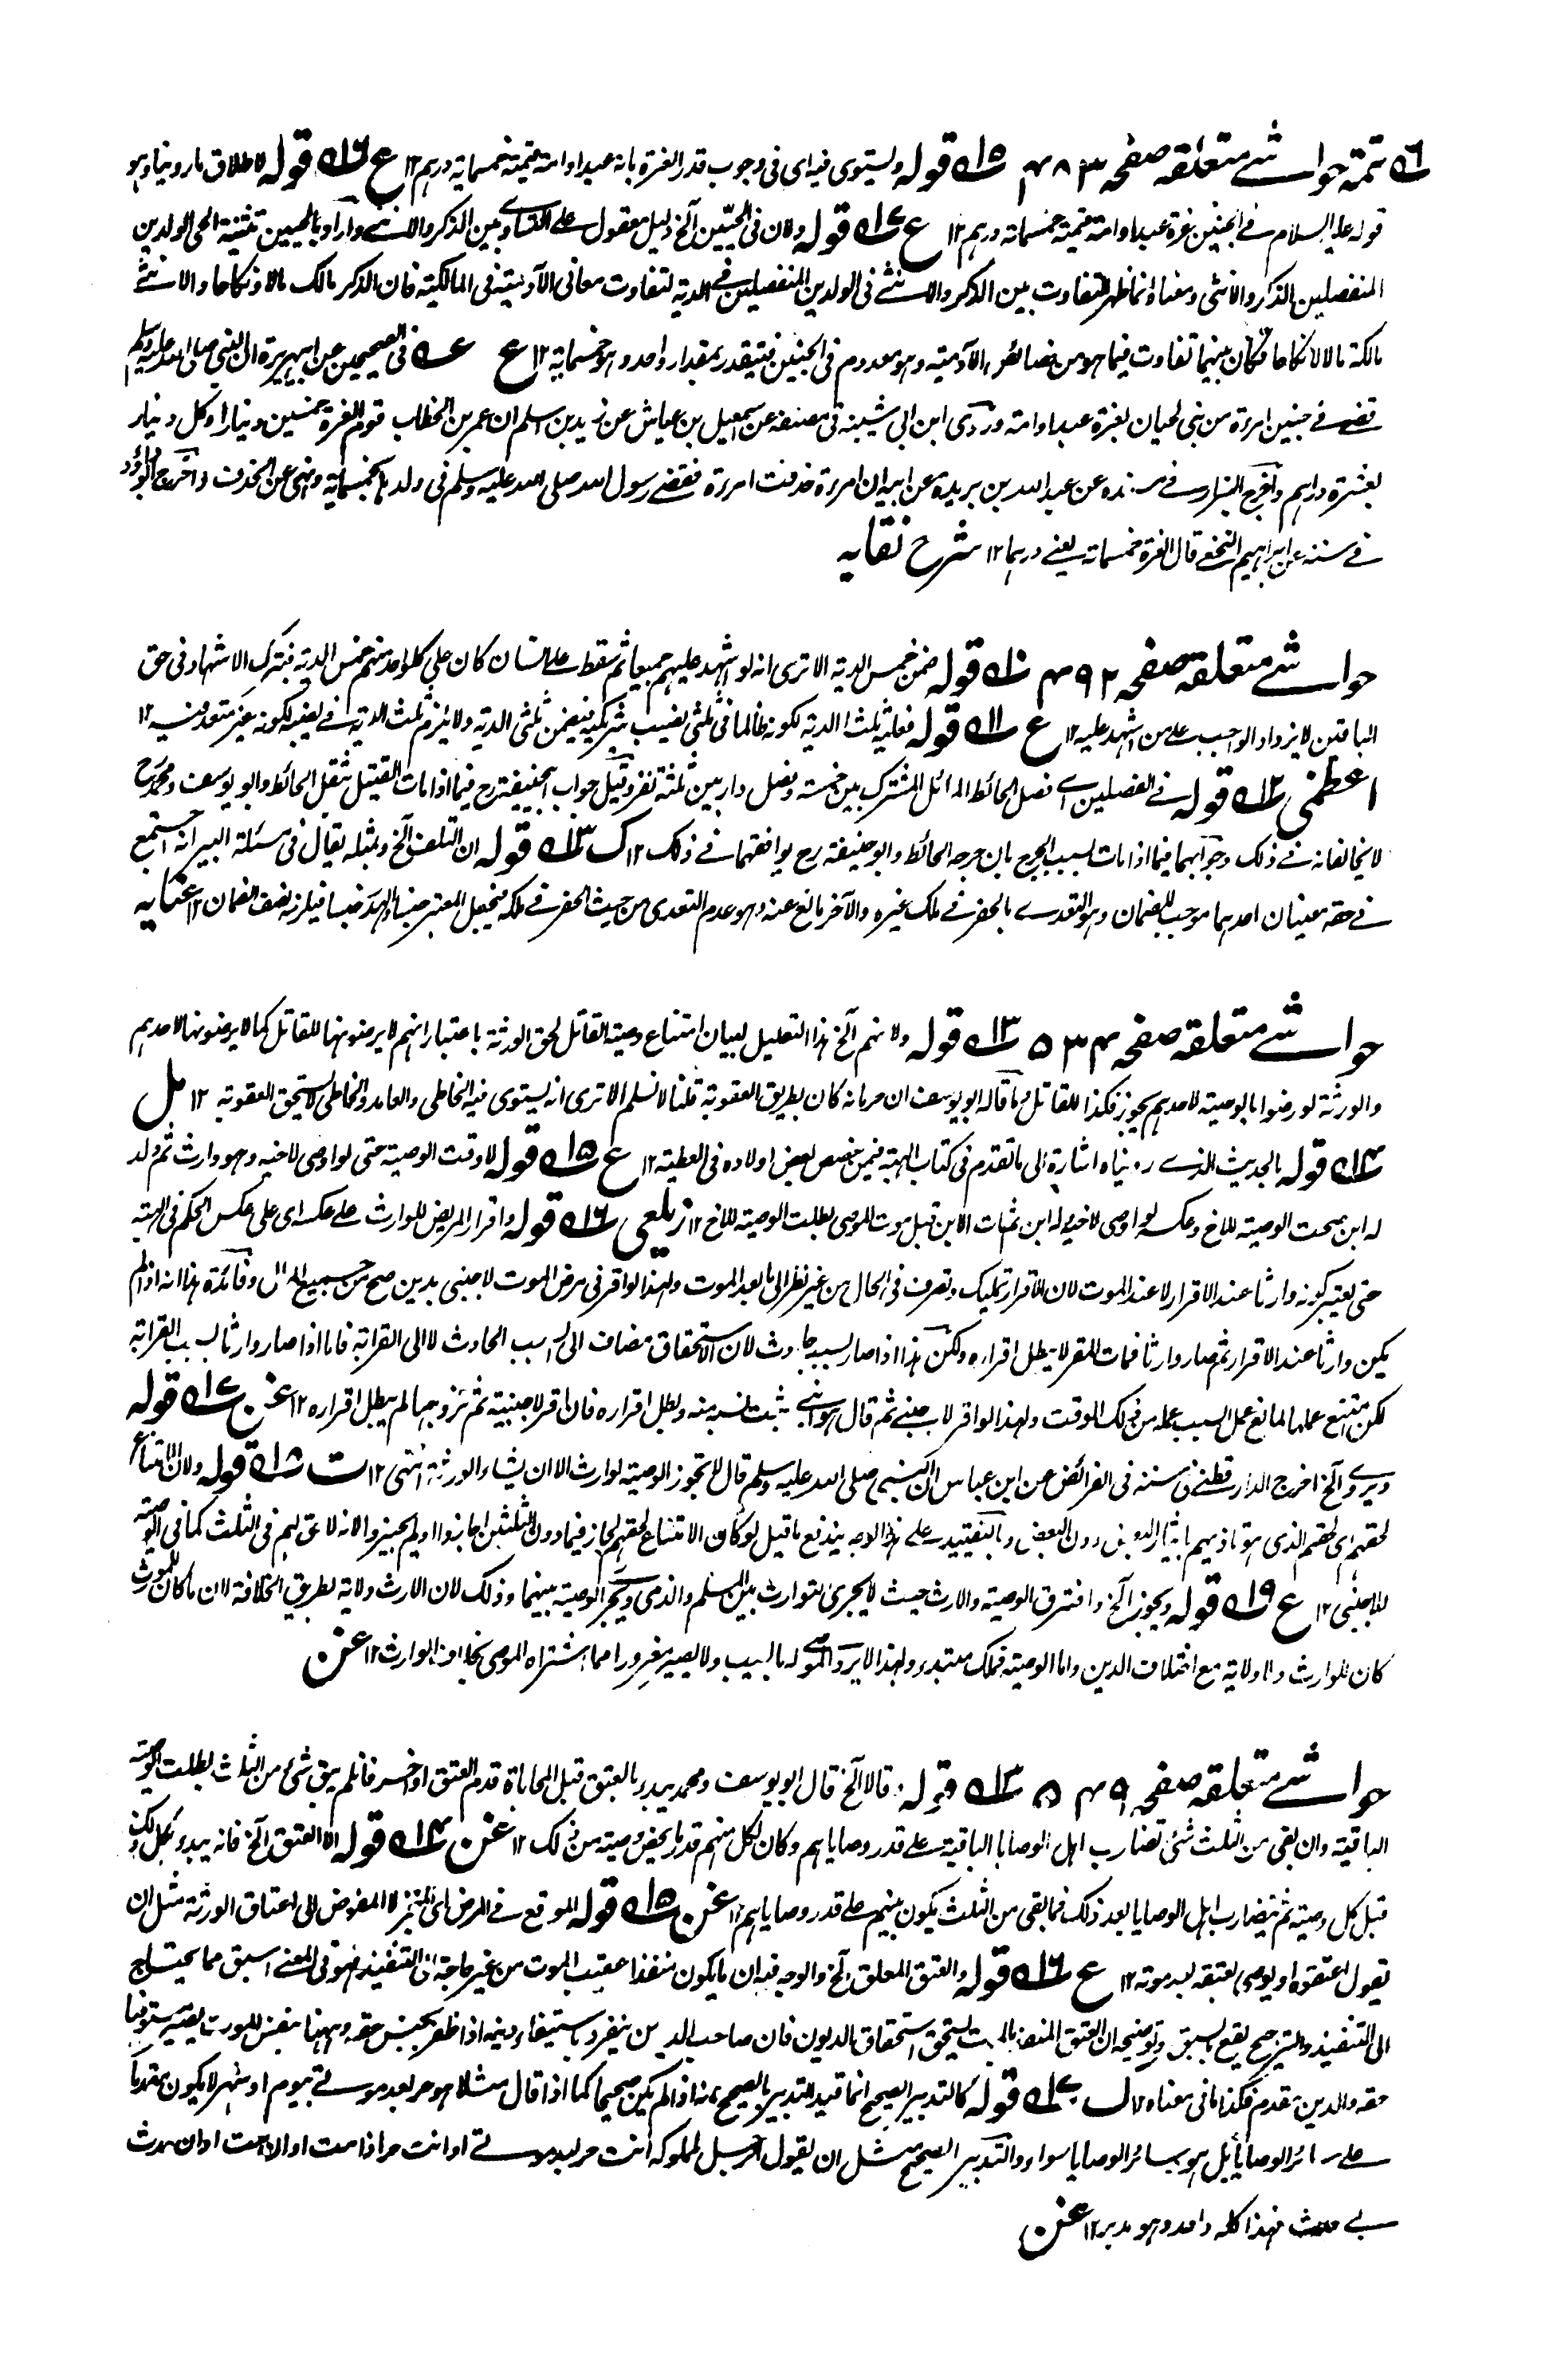 تتمة حواشی متعلقه صفحه ۴۸۳ ۱۵ قوله ويستوی فيه ای فی وجوب قدر الغرة بانه عبد او امة قيمته خمسماية درهم ۱۲ ع ۱۶ قوله لاطلاق ما روينا وهو
قوله عليه السلام فی الجنين غرة عبد او امة قيمته خمسمائة درهم ۱۲ ع ۱۷ قوله ولان فی الحيّين الخ دليل معقول علی التساوی بين الذكر والانثی واراد بالحيين تثنية الحی الولدين
المنفصلين الذكر والانثی ومعناه انما ظهر التفاوت بين الذكر والانثی فی الولدين المنفصلين فی الدية لتفاوت معانی الآدمية فی المالكية فان الذكر مالك مالا ونكاحا والانثی
مالكة مالا لا نكاحا فكان بينهما تفاوت فيما هو من خصائص الآدمية وهو معدوم فی الجنين فيتقدر بمقدار واحد وهو خمسماية ۱۲ ع عه فی الصحيحين عن ابی هريرة ان النبی صلی الله عليه وسلم
قضی فی جنين امرءة من بنی لحيان بغرة عبد او امة وروی ابن ابی شيبة فی مصنفه عن اسمعيل بن عياش عن زيد بن اسلم ان عمر بن الخطاب قوّم الغرة بخمسين دينارا وكل دينار
بعشرة دراهم واخرج البزار فی مسنده عن عبد الله بن بريدة عن ابيه ان امرءة خذفت امرءة فقضی رسول الله صلی الله عليه وسلم فی ولدها بخمسماية ونهی عن الخذف واخرج ابو داؤد
فی سننه عن ابراهيم النخعی قال الغرة خمسمائة يعنی درهما ۱۲ شرح نقايه
حواشی متعلقه صفحه ۴۹۲ ۱۰ قوله ضمن خمس الدية الا تری انه لو اشهد عليهم جميعا ثم سقط علی انسان كان علی كل واحد منهم خمس الدية فبترك الاشهاد فی حق
الباقين لا يزداد الواجب علی من اشهد عليه ۱۲ ع ۱۱ قوله فعليه ثلثا الدية لكونه ظالما فی ثلثی نصيب شريكيه فيضمن ثلثی الدية ولا يلزم ثلث الدية فی نصيبه لكونه غير متعد فيه ۱۲
اعظمی ۱۲ قوله فی الفصلين ای فصل الحائط المائل المشترك بين خمسة وفصل دار بين ثلثة نفر وقيل جواب ابی حنيفة رح فيما اذا مات القتيل بثقل الحائط وابو يوسف ومحمد رح
لا يخالفانه فی ذلك وجوابهما فيما اذا مات بسبب الجرح بان جرحه الحائط وابو حنيفة رح يوافقهما فی ذلك ۱۲ ك ۱۳ قوله ان التلف الخ وبمثله يقال فی مسئلة البير انه اجتمع
فی حقه معينان احدهما موجب للضمان وهو التعدی بالحفر فی ملك غيره والآخر مانع عنه وهو عدم التعدی من حيث الحفر فی ملكه فيجعل المعتبر جنسا والهدر جنسا فيلزمه نصف الضمان ۱۲ عنايه
حواشی متعلقه صفحه ۵۳۴ ۱۳ قوله ولانهم الخ هذا التعليل لبيان امتناع وصية القاتل لحق الورثة باعتبار انهم لا يرضونها للقاتل كما لا يرضونها لاحدهم
والورثة لو رضوا بالوصية لاحدهم يجوز فكذا للقاتل وما قاله ابو يوسف ان حرمانه كان بطريق العقوبة قلنا لا نسلم الا تری انه يستوی فيه الخاطی والعامد والخاطی لا يستحق العقوبة ۱۲ مل
۱۴ قوله بالحديث الذی رويناه اشارة الی ما تقدم فی كتاب الهبة فيمن خصص بعض اولاده فی العطية ۱۲ ع ۱۵ قوله لا وقت الوصية حتی لو اوصی لاخيه وهو وارث ثم ولد
له ابن صحت الوصية للاخ وعكسه لو اوصی لاخيه وله ابن ثم مات الابن قبل موت الموصی بطلت الوصية للاخ ۱۲ زيلعی ۱۶ قوله واقرار المريض للوارث علی عكسه ای علی عكس الحكم فی الهبة
حتی يعتبر كونه وارثا عند الاقرار لا عند الموت لان الاقرار تمليك وتصرف فی الحال من غير نظر الی ما بعد الموت ولهذا لو اقر فی مرض الموت لاجنبی بدين صح من جميع المال وفائدة هذا انه اذا لم
يكن وارثا عند الاقرار ثم صار وارثا فمات المقر لا يبطل اقراره ولكن هذا اذا صار بسبب حادث لان الاستحقاق مضاف الی السبب الحادث لا الی القرابة فاما اذا صار وارثا بسبب القرابة
لكن امتنع عملها لمانع عمل السبب عمله من ذلك الوقت ولهذا لو اقر لاجنبی ثم قال هو ابنی يثبت نسبه منه وبطل اقراره فان اقر لاجنبية ثم تزوجها لم يبطل اقراره ۱۲ عن ۱۷ قوله
ويروی الخ اخرج الدارقطنی فی سننه فی الفرائض عن ابن عباس ان النبی صلی الله عليه وسلم قال لا تجوز الوصية لوارث الا ان يشاء الورثة انتهی ۱۲ ت ۱۸ قوله ولان الامتناع
لحقهم ای لحقهم الذی هو تاذيهم بايثار البعض دون البعض وبالتقييد علی هذا الوجه يندفع ما قيل لو كان الامتناع لحقهم لجاز فيما دون الثلثين اجازوا او لم يجيزوا لانه لا حق لهم فی الثلث كما فی الوصية
للاجنبی ۱۲ ع ۱۹ قوله ويجوز الخ وافترق الوصية والارث حيث لا يجری التوارث بين المسلم والذمی ويجری الوصية بينهما وذلك لان الارث ولاية بطريق الخلافة لان ما كان للمورث
كان للوارث ولا ولاية مع اختلاف الدين واما الوصية فملك مبتدء ولهذا لا يرد الموصی له بالعيب ولا يصير مغرورا مما اشتراه الموصی بخلاف الوارث ۱۲ عن
حواشی متعلقه صفحه ۵۴۹ ۱۳ قوله قالا الخ قال ابو يوسف ومحمد يبدء بالعتق قبل المحاباة قدم العتق او اخر فان لم يبق شئ من الثلث بطلت الوصية
الباقية وان بقی من الثلث شئ تضارب اهل الوصايا الباقية علی قدر وصاياهم وكان لكل منهم قدر ما يخص وصيته من ذلك ۱۲ عن ۱۴ قوله الا العتق الخ فانه يبدء بكل ذلك
قبل كل وصية ثم يتضارب اهل الوصايا بعد ذلك فما بقی من الثلث يكون بينهم علی قدر وصاياهم ۱۲ عن ۱۵ قوله الموقع فی المرض ای المنجز لا المفوض الی اعتاق الورثة مثل ان
يقول اعتقوه او يوصی بعتقه بعد موته ۱۲ ع ۱۶ قوله والعتق المعلق الخ والوجه فيه ان ما يكون منفذا عقيب الموت من غير حاجة الی التنفيذ فهو فی المعنی اسبق مما يحتاج
الی التنفيذ والترجيح يقع بالسبق وتوضيحه ان العتق المنفذ بالموت يستحق استحقاق الديون فان صاحب الدين ينفرد باستيفاء دينه اذا ظفر بجنس حقه وههنا بنفس الموت يصير مستوفيا
حقه والدين مقدم فكذا ما فی معناه ۱۲ ك ۱۷ قوله كالتدبير الصحيح انما قيد التدبير بالصحيح لانه اذا لم يكن صحيحا كما اذا قال مثلا هو حر بعد موتی بيوم او شهر لا يكون مقدما
علی سائر الوصايا بل هو بسائر الوصايا سواء والتدبير الصحيح مثل ان يقول الرجل لمملوكه انت حر بعد موتی او انت حر اذا مت او ان مت او ان حدث
بی حدث فهذا كله واحد وهو مدبر ۱۲ عن